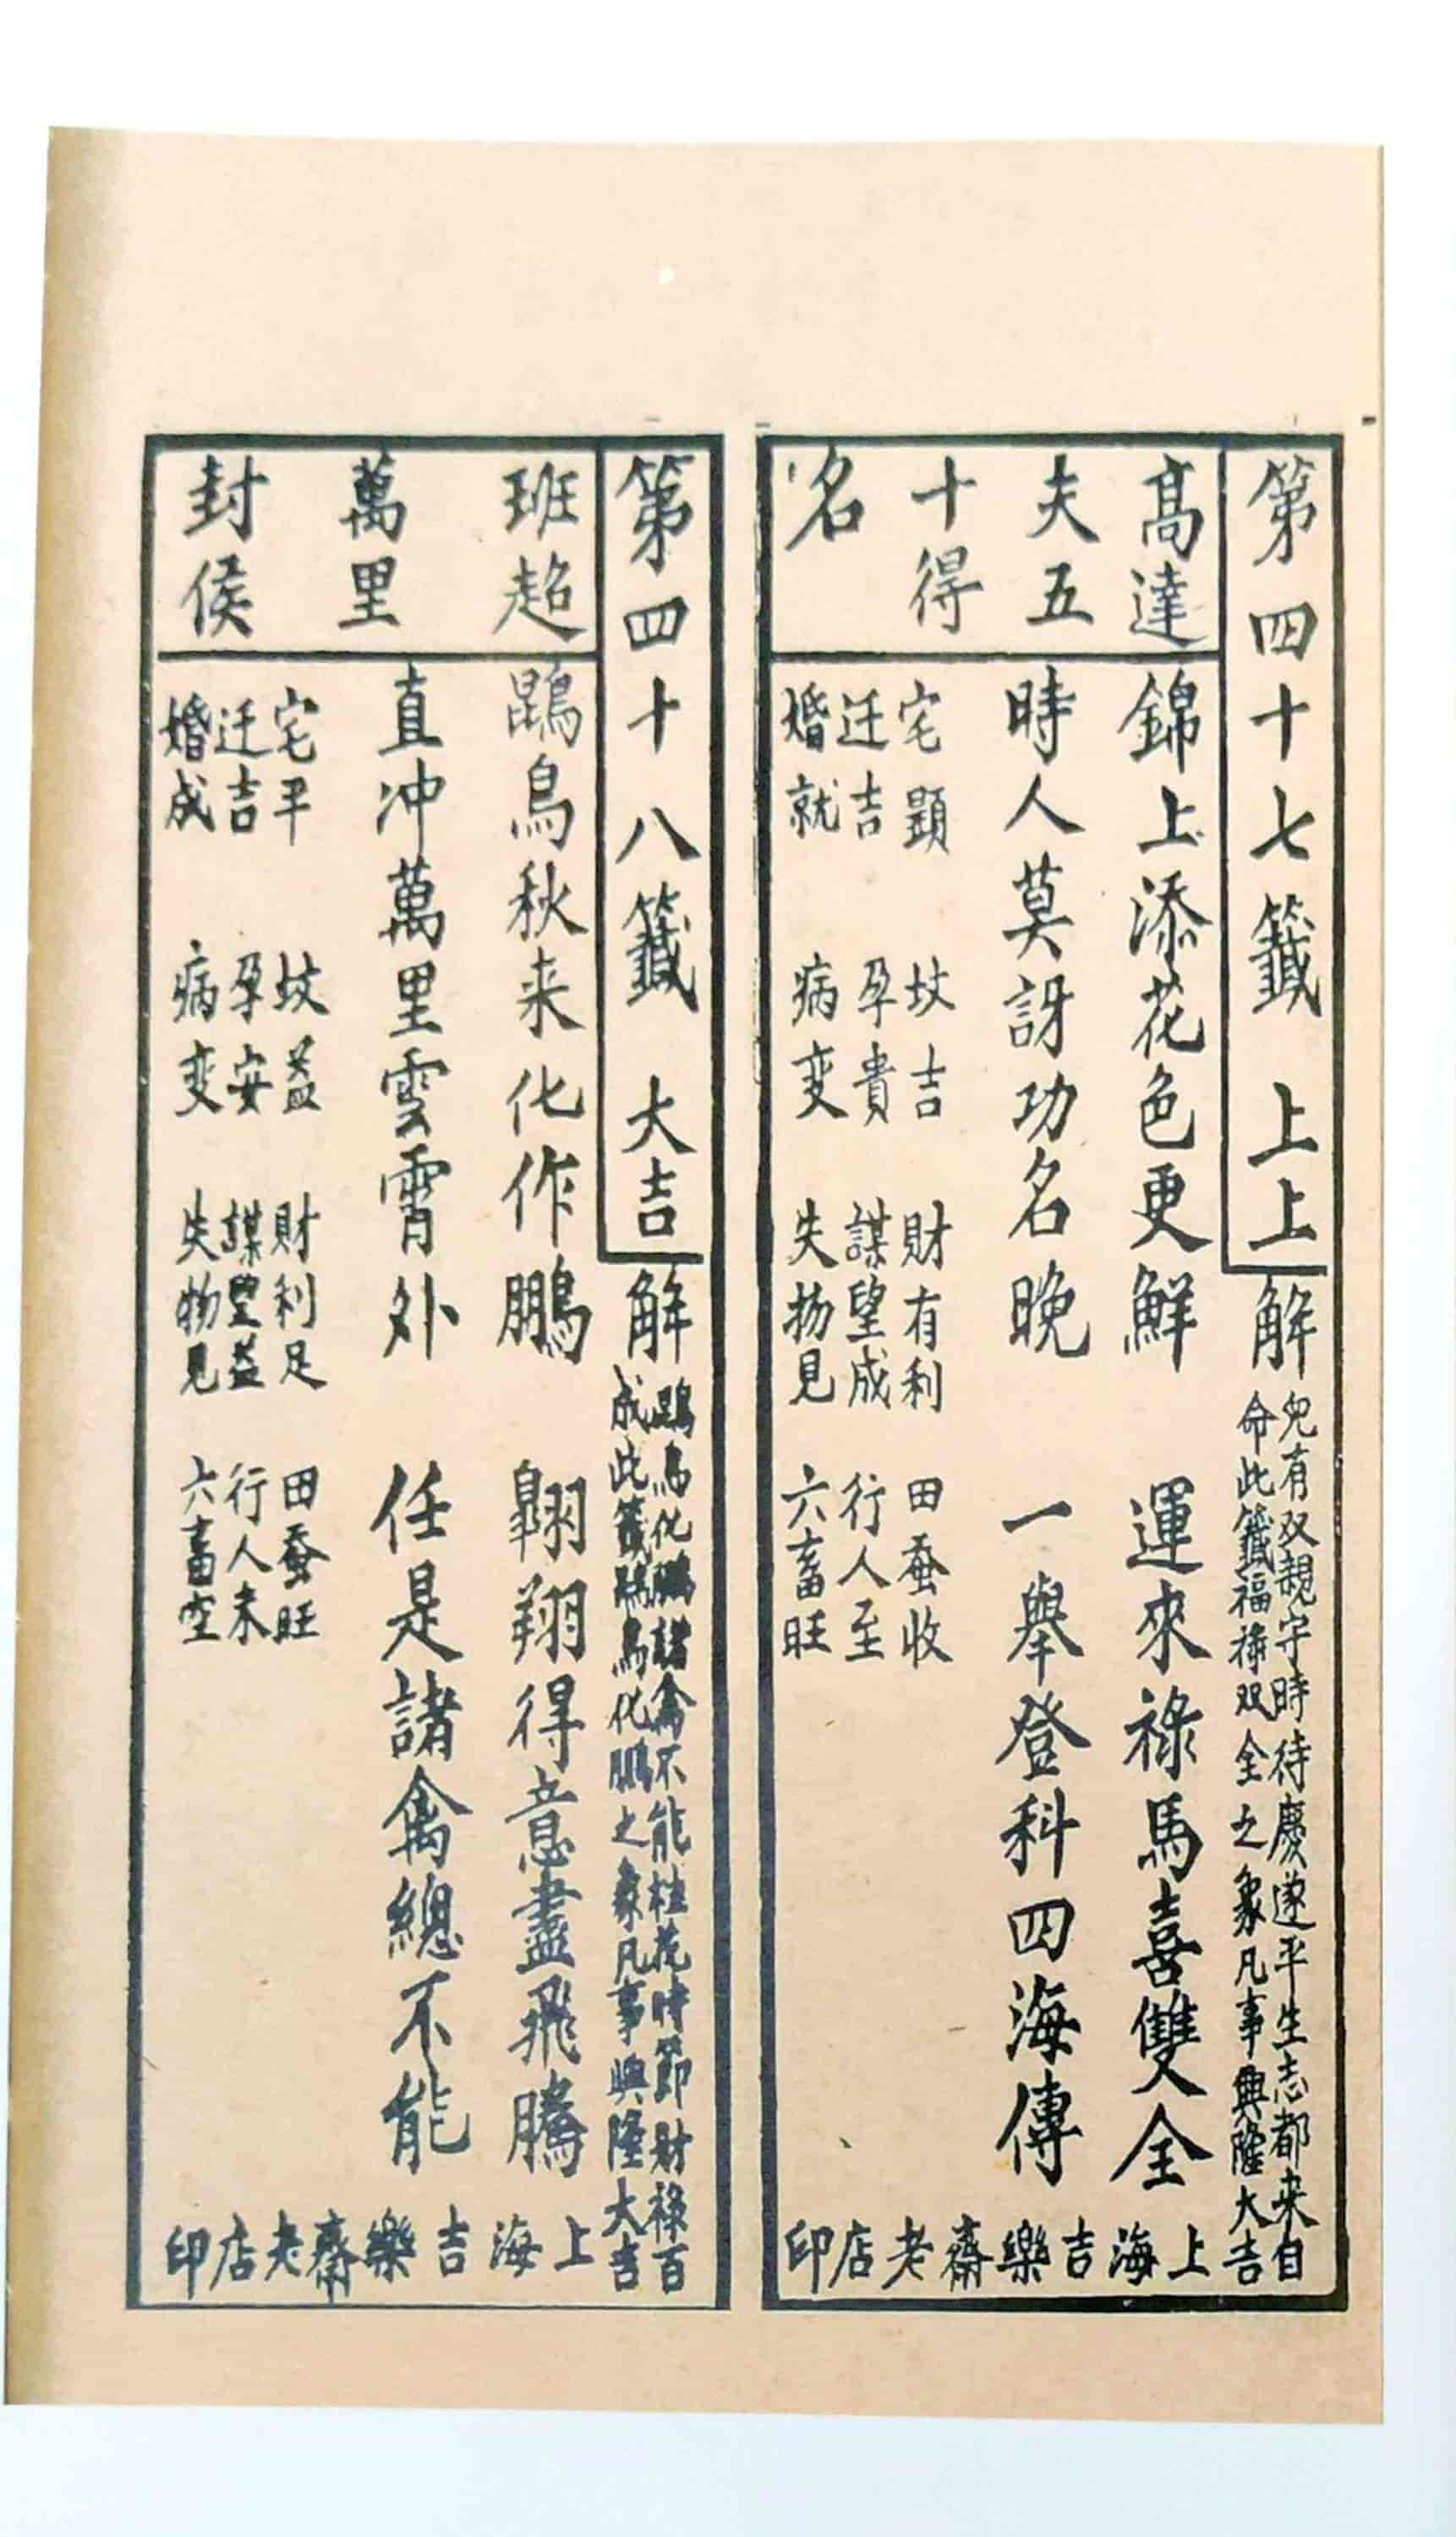 第四十七籤 上上
解
兒有双親守時待慶遂平生志都来自
命此籤福禄双全之象凡事興隆大吉
高達
夫五
十得
名
錦上添花色更鮮 運來祿馬喜雙全
時人莫訝功名晚 一舉登科四海傳
宅顕 坟吉 財有利 田蚕收
迁吉 孕貴 謀望成 行人至
婚就 病变 失物見 六畜旺
上海吉樂齋老店印
第四十八籤 大吉
解
鵾鳥化鵬諸禽不能桂花時節財祿百
成此籤鵾鳥化鵬之象凡事興隆大吉
班超
萬里
封侯
鵾鳥秋来化作鵬 翺翔得意盡飛騰
直冲萬里雲霄外 任是諸禽總不能
宅平 坟益 財利足 田蚕旺
迁吉 孕安 謀望益 行人未
婚成 病变 失物見 六畜空
上海吉樂齋老店印